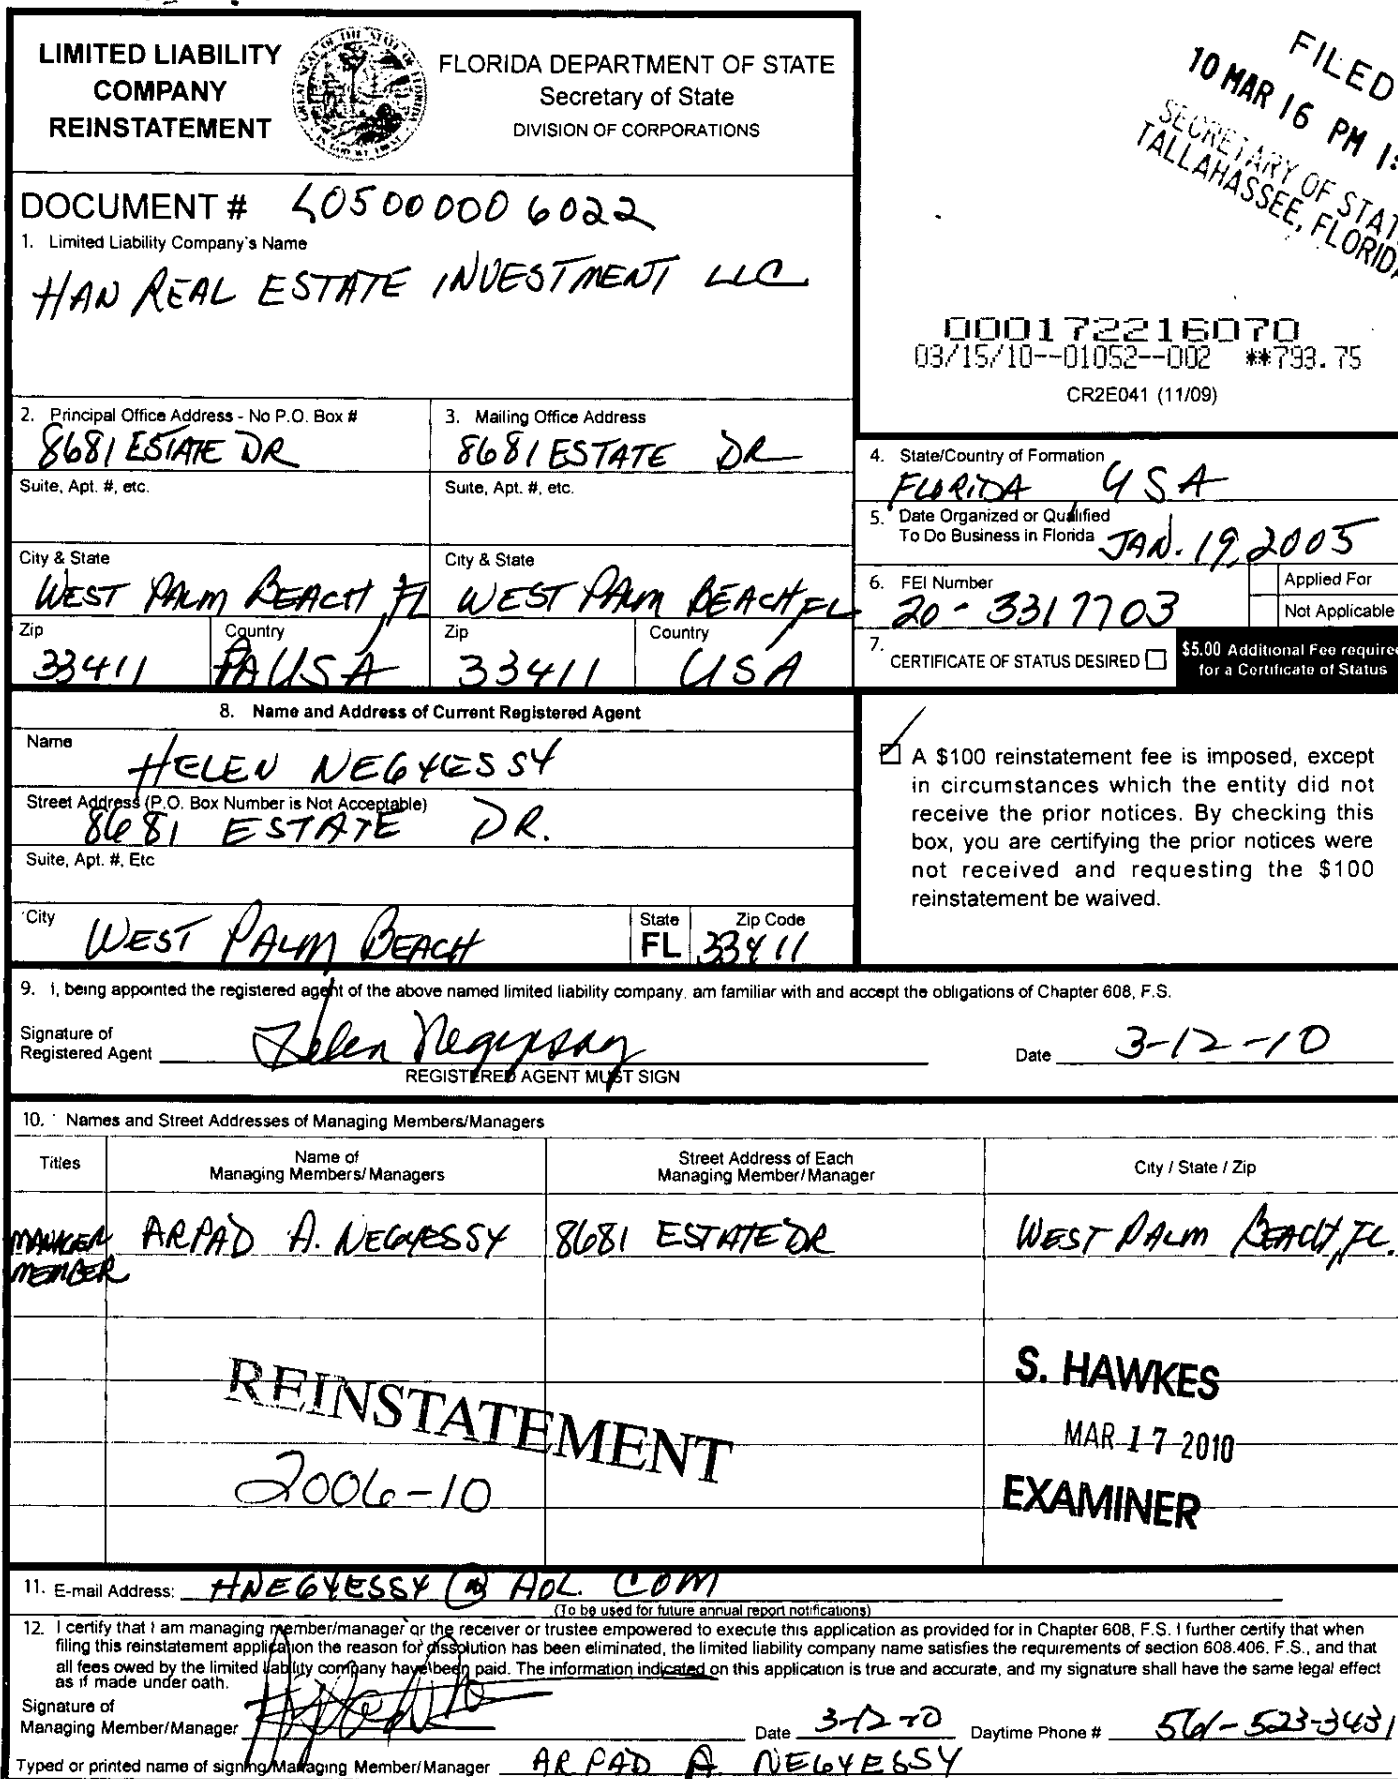 LIMITED LIABILITY
COMPANY
REINSTATEMENT
FLORIDA DEPARTMENT OF STATE
Secretary of State
DIVISION OF CORPORATIONS
FILED
10 MAR 16 PM 1:
SECRETARY OF STAT
TALLAHASSEE, FLORIDA
DOCUMENT # L05000006022
1. Limited Liability Company's Name
HAN REAL ESTATE INVESTMENT LLC
000172216070
03/15/10--01052--002 **793.75
CR2E041 (11/09)
2. Principal Office Address - No P.O. Box #
8681 ESTATE DR
3. Mailing Office Address
8681 ESTATE DR
Suite, Apt. #, etc.
Suite, Apt. #, etc.
City & State
WEST PALM BEACH, FL
City & State
WEST PALM BEACH, FL
Zip
33411
Country
USA
Zip
33411
Country
USA
4. State/Country of Formation
FLORIDA USA
5. Date Organized or Qualified
To Do Business in Florida JAN. 19, 2005
6. FEI Number
20-3317703
Applied For
Not Applicable
7. CERTIFICATE OF STATUS DESIRED
$5.00 Additional Fee require
for a Certificate of Status
8. Name and Address of Current Registered Agent
Name
HELEN NEGYESSY
Street Address (P.O. Box Number is Not Acceptable)
8681 ESTATE DR.
Suite, Apt. #, Etc
City
WEST PALM BEACH
State
FL
Zip Code
33411
A $100 reinstatement fee is imposed, except
in circumstances which the entity did not
receive the prior notices. By checking this
box, you are certifying the prior notices were
not received and requesting the $100
reinstatement be waived.
9. I, being appointed the registered agent of the above named limited liability company, am familiar with and accept the obligations of Chapter 608, F.S.
Signature of
Registered Agent Helen Negyessy
REGISTERED AGENT MUST SIGN
Date 3-12-10
10. Names and Street Addresses of Managing Members/Managers
Titles
Name of
Managing Members/Managers
Street Address of Each
Managing Member/Manager
City / State / Zip
MANAGER ARPAD A. NEGYESSY 8681 ESTATE DR WEST PALM BEACH, FL.
MEMBER
REINSTATEMENT
2006-10
S. HAWKES
MAR 17 2010
EXAMINER
11. E-mail Address: HNEGYESSY@AOL.COM
(To be used for future annual report notifications)
12. I certify that I am managing member/manager or the receiver or trustee empowered to execute this application as provided for in Chapter 608, F.S. I further certify that when
filing this reinstatement application the reason for dissolution has been eliminated, the limited liability company name satisfies the requirements of section 608.406, F.S., and that
all fees owed by the limited liability company have been paid. The information indicated on this application is true and accurate, and my signature shall have the same legal effect
as if made under oath.
Signature of
Managing Member/Manager
Date 3-12-10
Daytime Phone # 561-523-3431
Typed or printed name of signing Managing Member/Manager ARPAD A. NEGYESSY